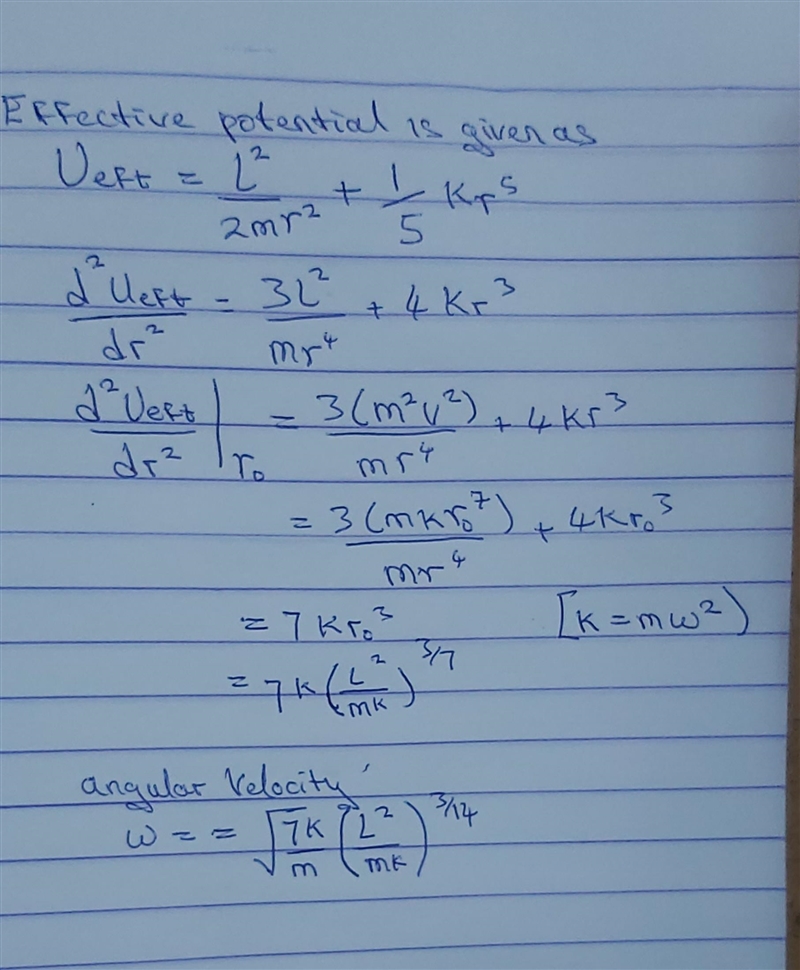 Effective potential is given as
Ueff = L²/2mr² + 1/5 Kr⁵
d²Ueff/dr² = 3L²/mr⁴ + 4Kr³
d²Ueff/dr² |r₀ = 3(m²v²)/mr⁴ + 4Kr³
= 3(mkr₀⁷)/mr⁴ + 4Kr₀³
= 7Kr₀³ [K = mω²)
= 7K(L²/mK)^3/7
angular velocity
ω = = √7K/m (L²/mK)^3/14